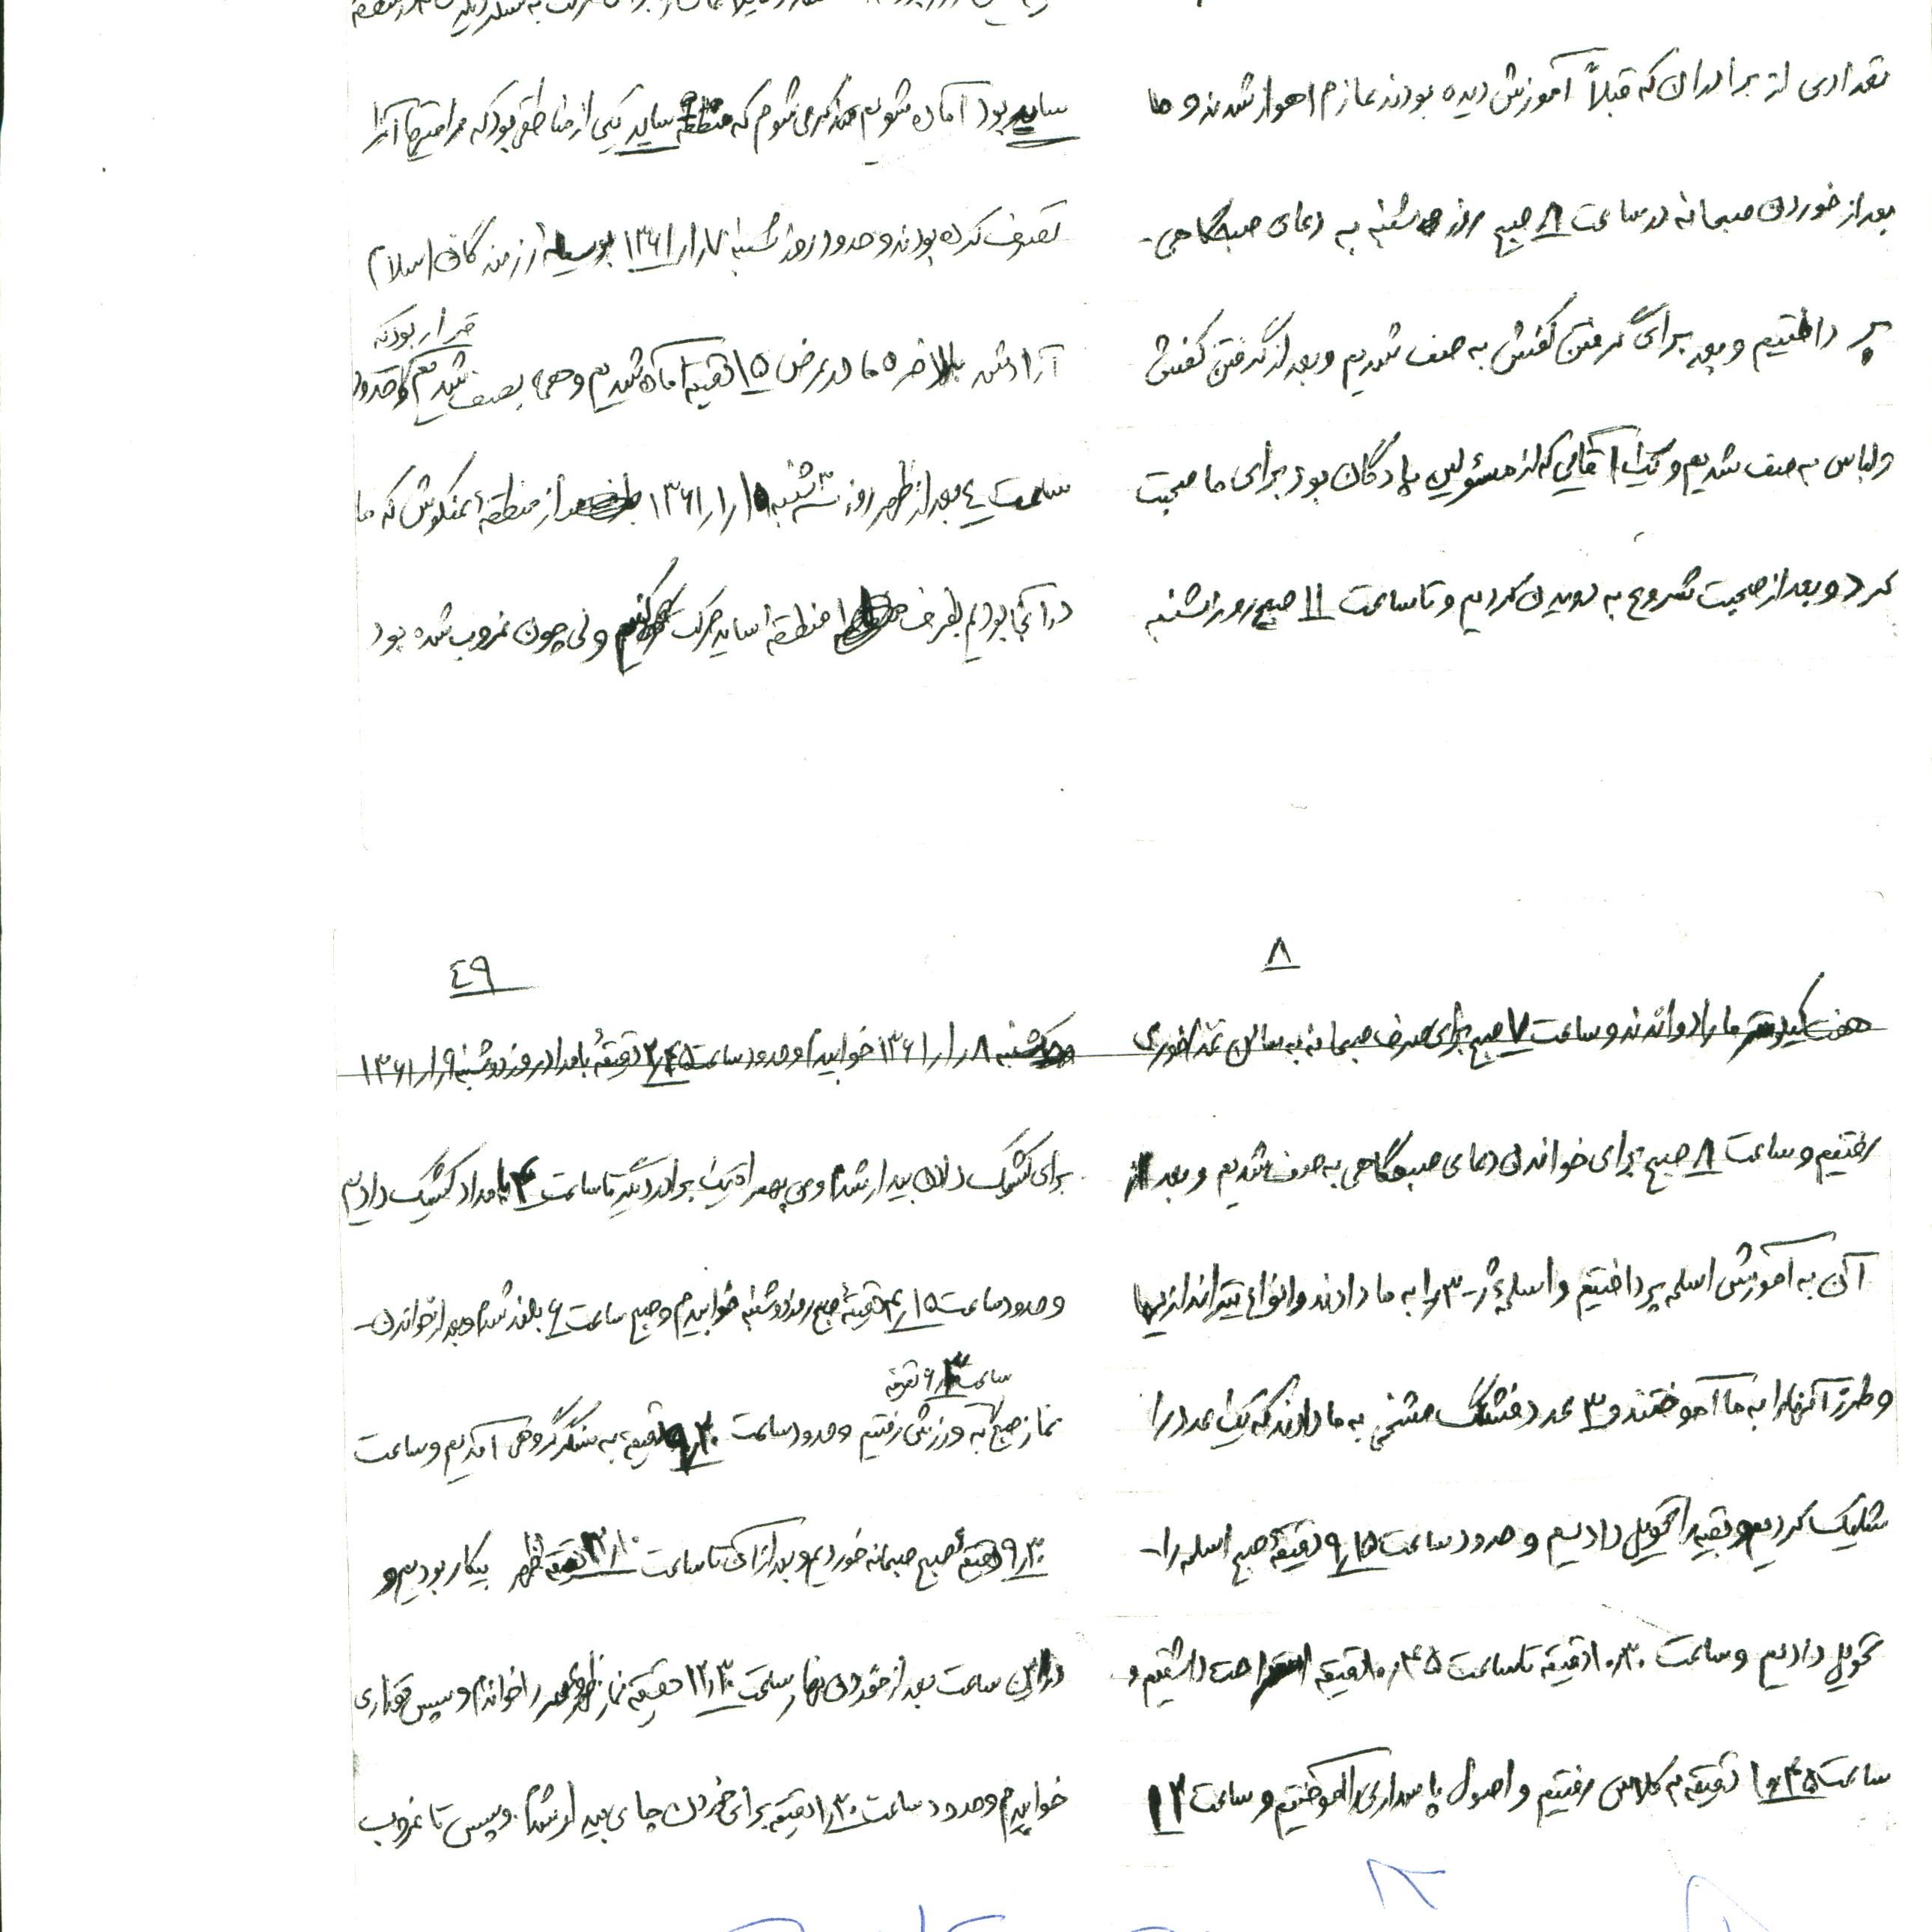 تعدادی از برادران که قبلاً آموزش دیده بودند عازم اهواز شدند و ما
بعد از خوردن صبحانه در ساعت ۸ صبح روز شنبه به دعای صبحگاهی-
پر داختیم و بعد برای گرفتن کفش به صف شدیم و بعد از گرفتن کفش
و لباس به صف شدیم و یک آقایی که از مسؤلین پادگان بود برای ما صحبت
کرد و بعد از صحبت شروع به دویدن کردیم و تا ساعت ۱۱ صبح روز شنبه
ساید بود آماده شویم متذکر می شوم که منطقه ساید یکی از مناطقی بود که عراقیها آنرا
تصرف کرده بودند و حدود روز شنبه ۷ر۱ر۱۳۶۱ بوسیله رزمندگان اسلام
قرار بود که
آزاد شد بالاخره ما در عرض ۱۵ دقیقه آماده شدیم و همه بصف شدیم حدود
ساعت ٤ بعد از ظهر روز ۳ شنبه ۱۰ر۱ر۱۳۶۱ از منطقه عنکوش که ما
در آنجا بودیم بطرف منطقه ساید حرکت کنیم ولی چون غروب شده بود
۸
هفت کیلومتر ما را دواندند و ساعت ۷ صبح برای صرف صبحانه به سالن غذاخوری
رفتیم و ساعت ۸ صبح برای خواندن دعای صبحگاهی به صف شدیم و بعد از
آن به آموزش اسلحه پرداختیم و اسلحهٔ ژ-۳ را به ما دادند و انواع تیراندازیها
و طرز آنها را به ما آموختند و ۳ عدد فشنگ مشقی به ما دادند که یک عدد را
شلیک کردیم و بقیه را تحویل دادیم و حدود ساعت ۹٫۱۵ دقیقهٔ صبح اسلحه را-
تحویل دادیم و ساعت ۱۰٫۳۰ دقیقه تا ساعت ۱۰٫۴۵ دقیقه استراحت داشتیم و
ساعت ۱۰٫۴۵ دقیقه به کلاس رفتیم و اصول پاسداری را آموختیم و ساعت ۱۲
٤۹
یکشنبه ۸ر۱ر۱۳۶۱ خوابیدم و حدود ساعت ۲٫۴۵ دقیقهٔ بامداد روز دوشنبه ۹ر۱ر۱۳۶۱
برای کشیک دادن بیدار شدم و من بهمراه یک برادر دیگر تا ساعت ۴ بامداد کشیک دادیم
و حدود ساعت ۴٫۱۵ دقیقهٔ صبح روز دوشنبه خوابیدم و صبح ساعت ۶ بلند شدم و بعد از خواندن-
نماز صبح به ورزش رفتیم و حدود ساعت دقیقه به سنگر گروهی آمدیم و ساعت
۹٫۳۰ دقیقهٔ صبح صبحانه خوردیم و بعد از آن تا ساعت ۱۲٫۱۰ دقیقه ظهر بیکار بودیم و
در این ساعت بعد از خوردن نهار ساعت ۱۲٫۳۰ دقیقه نماز ظهر و عصر را خواندم و سپس مقداری
خوابیدم و حدود ساعت ۱٫۳۰ دقیقه برای خوردن چای بیدار شدم. و سپس تا غروب